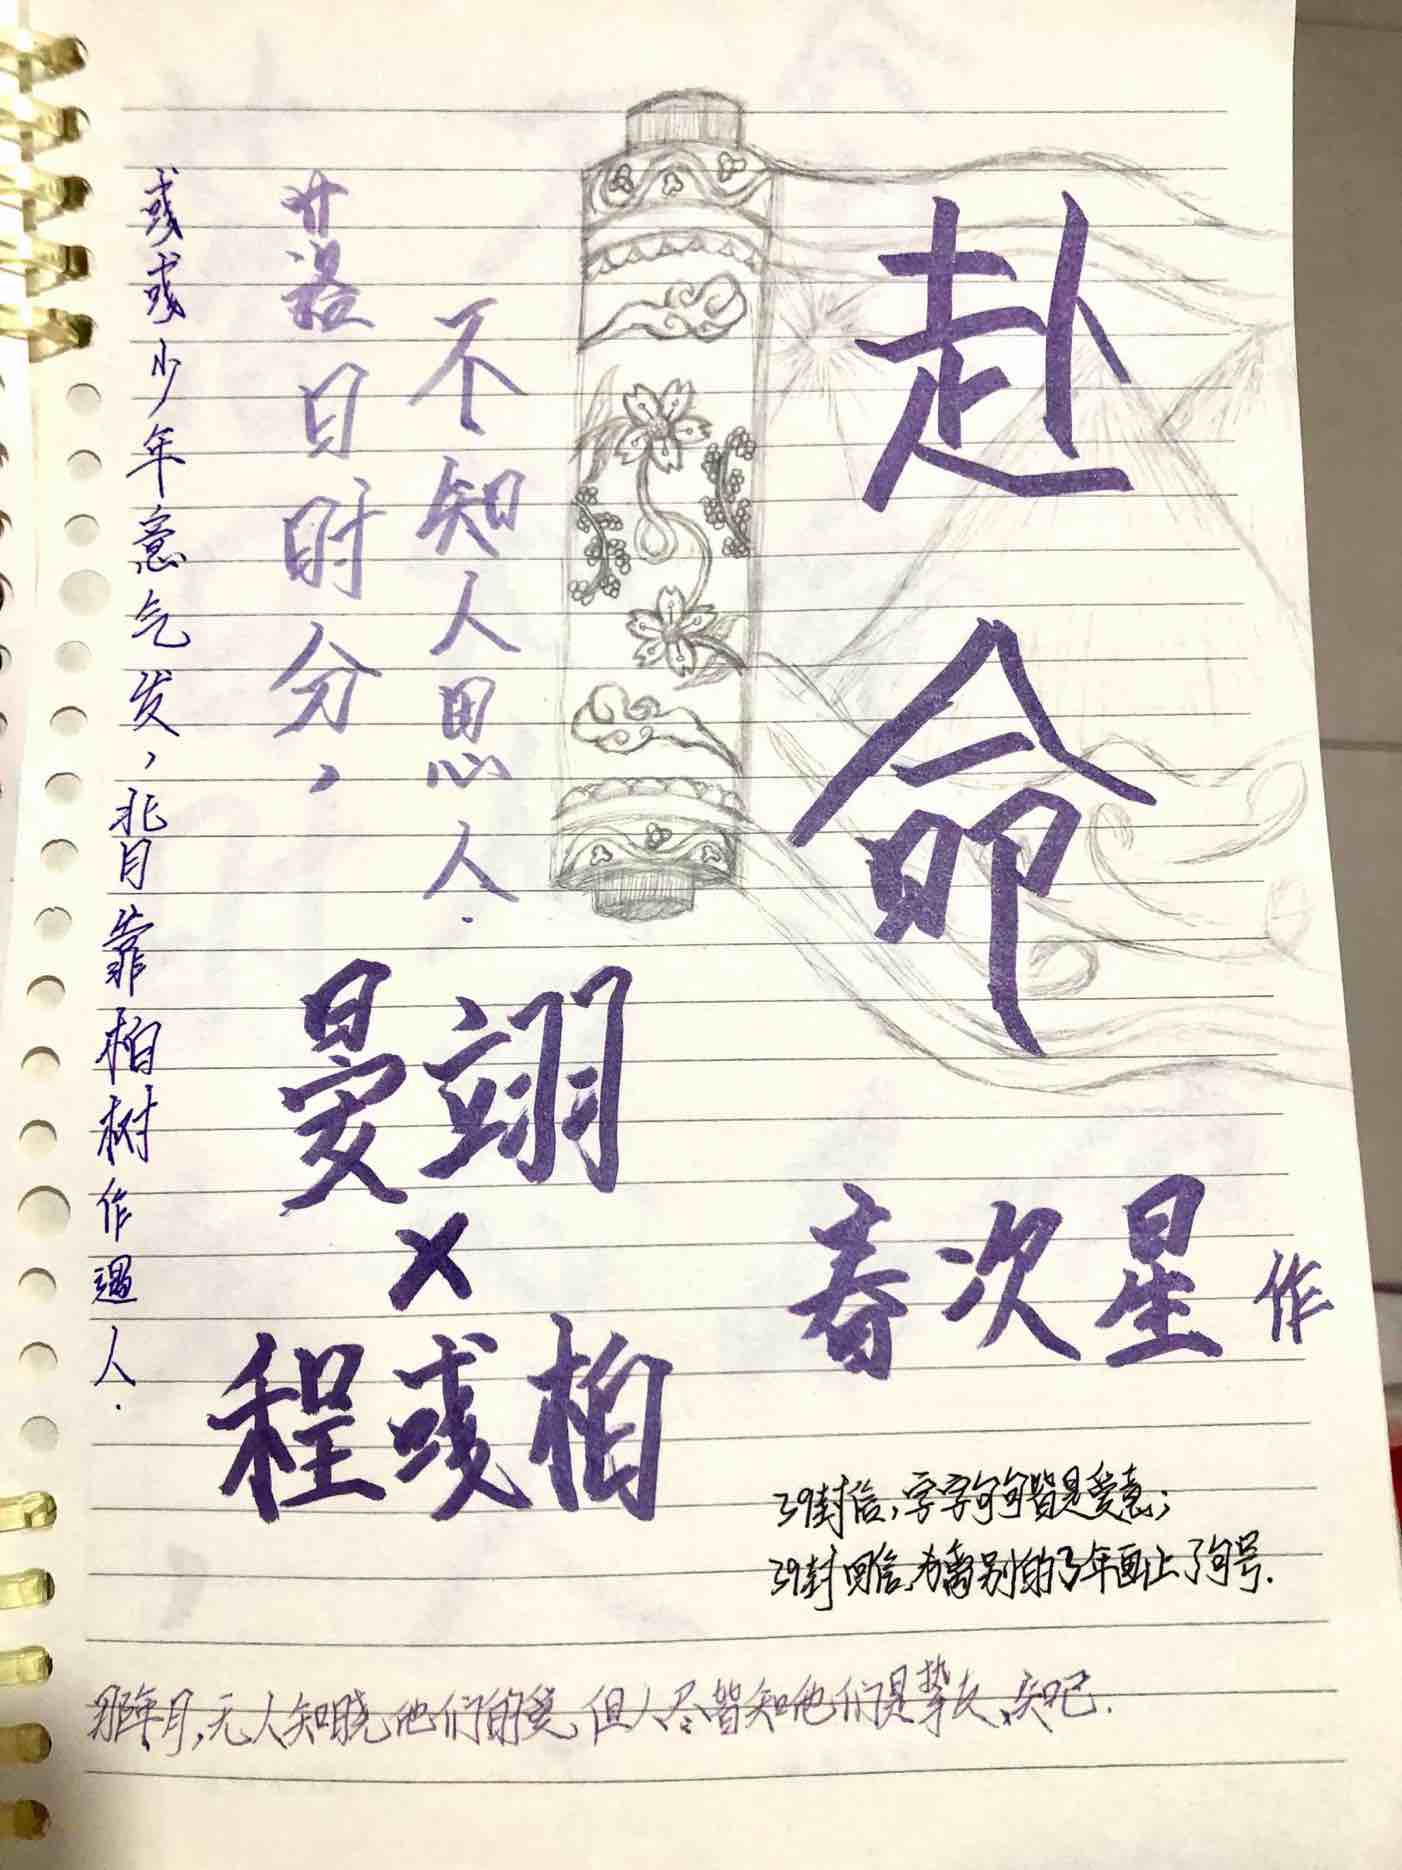 赴命
春次星 作
不知人思人.
落日时分,
晏翊
×
程彧柏
彧彧少年意气发,背靠柏树作過人.
39封信,字字句句皆是爱意;
39封回信,为离别的3年画上了句号.
那年月,无人知晓他们的爱,但人尽皆知他们是挚友、知己.